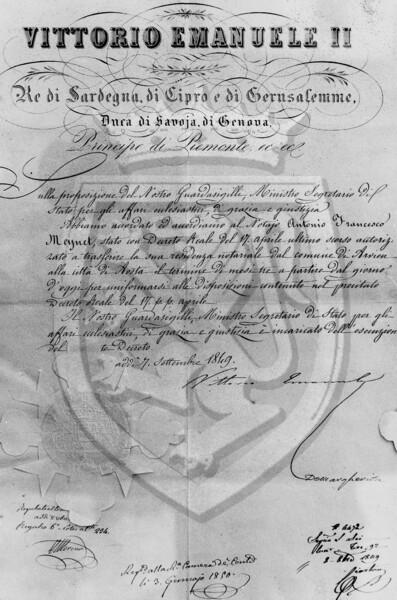 VITTORIO EMANUELE II
Re di Sardegna, di Cipro e di Gerusalemme,
Duca di Savoja, di Genova,
Principe di Piemonte ec ec
Sulla proposizione del Nostro Guardasigilli, Ministro Segretario di
Stato per gli affari ecclesiastici, di grazia e giustizia
Abbiamo accordato ed accordiamo al Notajo Antonio Francesco
Meynet, stato con Decreto Reale del 17. aprile ultimo scorso autoriz
zato a trasferire la sua residenza notariale dal comune di Arvier
alla città di Aosta il termine di mesi tre a partire dal giorno
d'oggi per uniformarsi alle disposizioni contenute nel precitato
Decreto Reale del 17. p.p. aprile
Il Nostro Guardasigilli, Ministro Segretario di Stato per gli
affari ecclesiastici, di grazia e giustizia è incaricato dell'esecuzione
del Decreto
addì 7. Settembre 1849.
Vittorio Emanuele
Demargherita
Registro 6°
224.
Reg.to alla R.a Camera de' Conti
li 3. Gennajo 1850.
1849